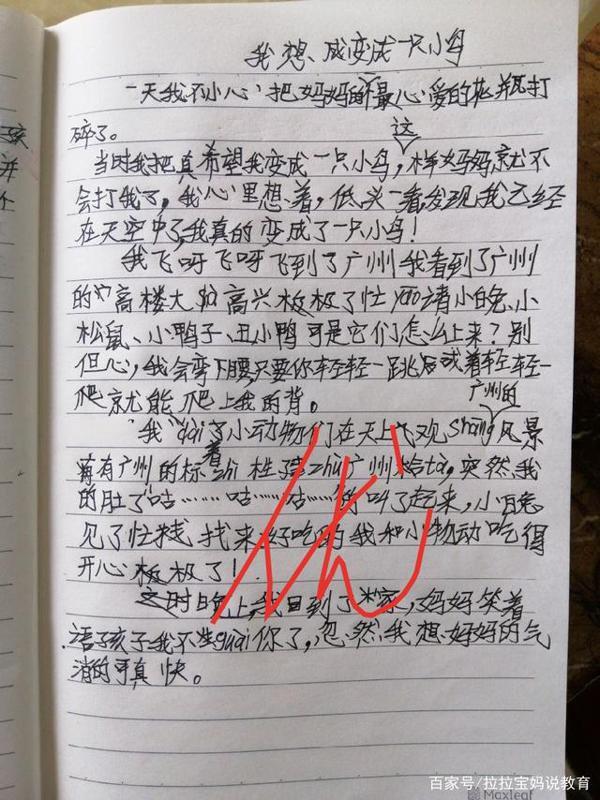 我想、成变成一只小鸟
一天我不小心把妈妈的最心爱的花并瓦打
碎了。
这
当时我把真希望我变成一只小鸟，样妈妈就不
会打我了，我心里想着，低头一看发现我已经
在天空中了，我真的变成了一只小鸟！
我飞呀飞呀飞到了广州我看到了广州
的高楼大 高兴板极了忙yao请小白兔、小
松鼠、小鸭子、丑小鸭可是它们怎么上来？别
但心，我会弯下腰只要你轻轻一跳后或着轻轻一
爬就能爬上我的背。
广州的
我dai了小动物们在天上飞观shang风景
看
有广州的标zhi性zhu广州ta，突然我
的肚了咕……咕……咕……叫了起来，小白兔
见了忙找 找来好吃的我和小物动吃得
开心板极了！
之时晚上，我回到了家，妈妈笑着
语孩子我不guai你了，忽然我想妈妈的气
消的可真快。
优
百家号/拉拉宝妈说教育
Maxleaf